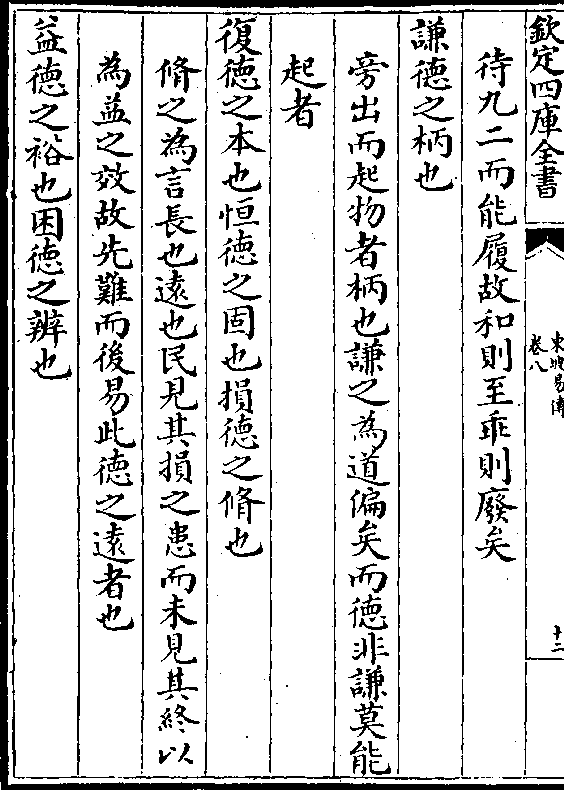 欽定四庫全書
東坡易傳
卷八
十二
待九二而能履故和則至乖則廢矣
謙德之柄也
旁出而起物者柄也謙之為道偏矣而德非謙莫能
起者
復德之本也恒德之固也損德之脩也
脩之為言長也遠也民見其損之患而未見其終以
為益之效故先難而後易此德之遠者也
益德之裕也困德之辨也